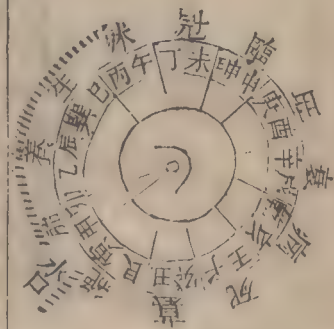 沐冠臨旺衰病死墓絕胎養生
丙午丁未坤申庚酉辛戌乾亥壬子癸丑艮寅甲卯乙辰巽巳